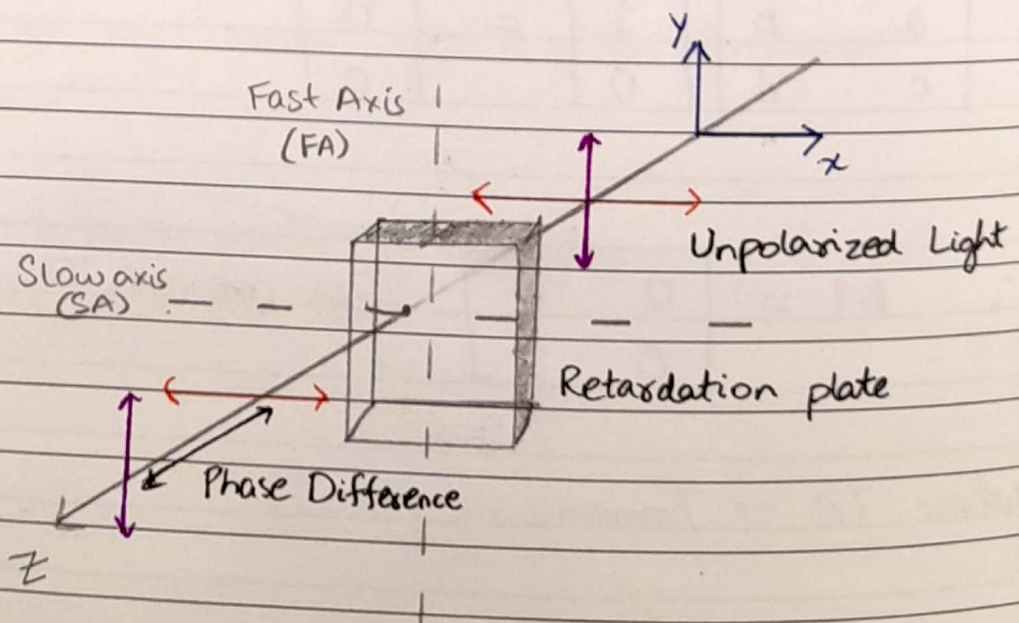 Y
Fast Axis
(FA)
x
Unpolarized Light
Slow axis
(SA)
Retardation plate
Phase Difference
Z